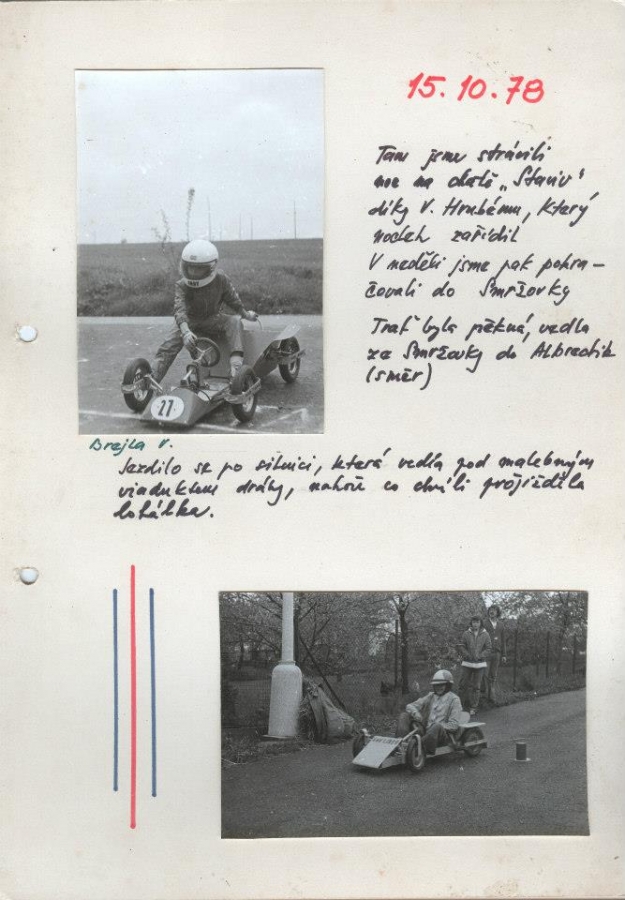 15.10.78
Tam jsme strávili
noc na chatě „Staniv"
díky V. Hrubému, který
nocleh zařídil
V neděli jsme pak pokra-
čovali do Smržovky
Trať byla pěkná, vedla
ze Smržovky do Albrechtic
(směr)
27
Brejla V.
Jezdilo se po silnici, která vedla pod malebným
viaduktem dráhy, nahoře co chvíli projížděla
lokálka.